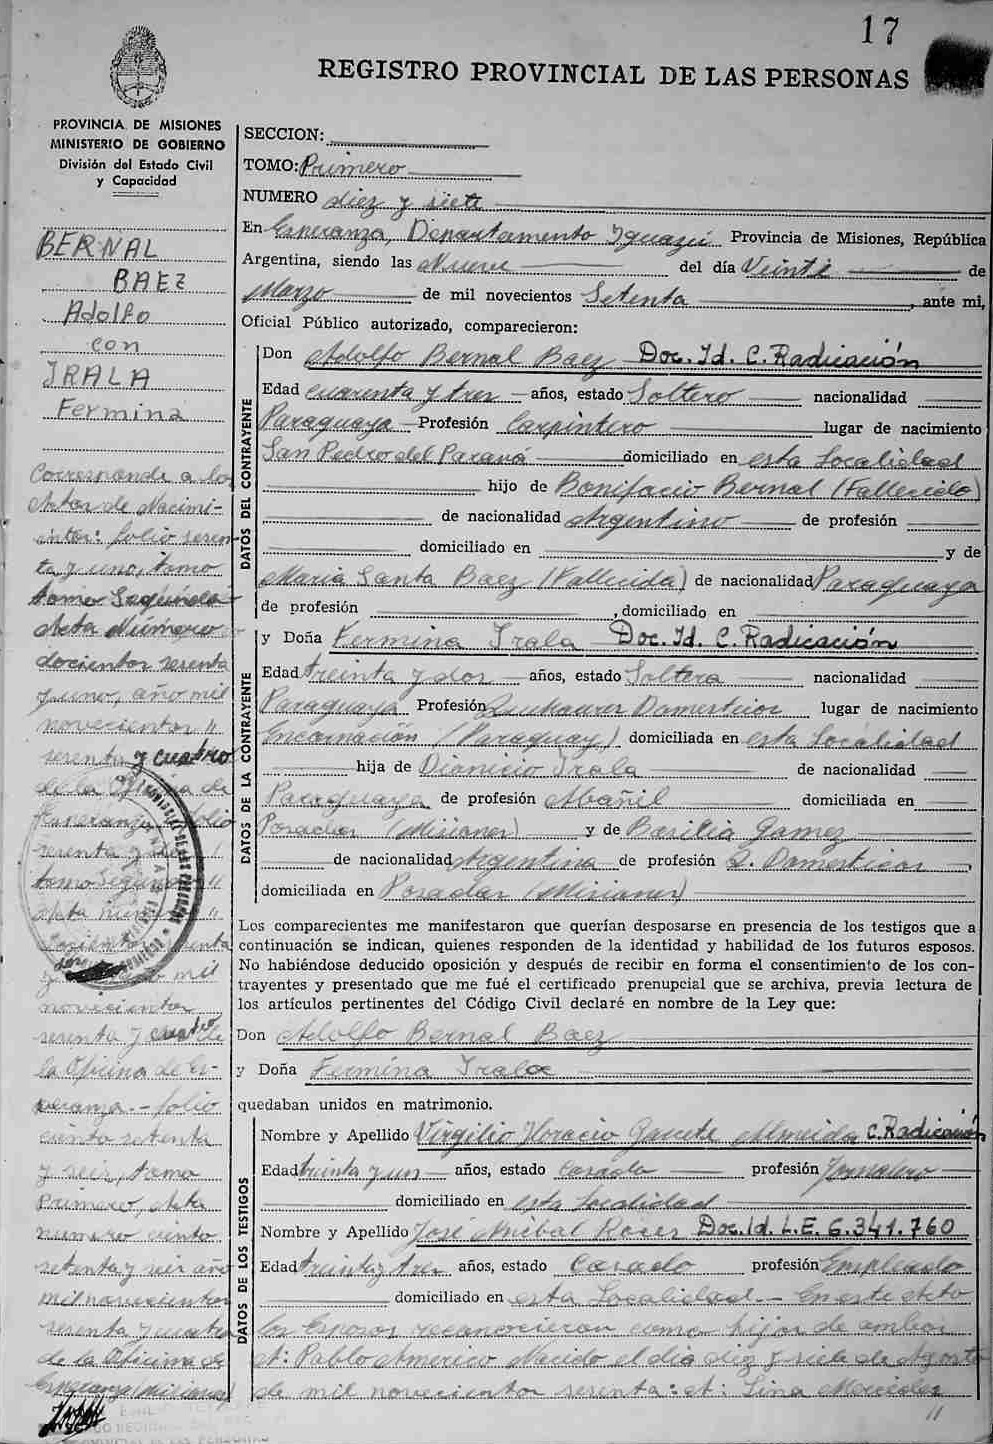 17
REGISTRO PROVINCIAL DE LAS PERSONAS
PROVINCIA DE MISIONES
MINISTERIO DE GOBIERNO
División del Estado Civil
y Capacidad
BERNAL
BAEZ
Adolfo
con
IRALA
Fermina
Corresponde a los
Actas de Nacimi-
entos: folio sesen
ta y uno, tomo
tomo Segundo
Acta Número
docientos sesenta
y uno, año mil
novecientos "
sesenta y cuatro
de la Oficina de
Esperanza, folio
sesenta y
tomo segundo "
acta número "
docientos sesenta
y mil
novecientos
sesenta y cuatro de
la Oficina de Es-
peranza.- folio
ciento setenta
y seis, tomo
Primero, Acta
numero ciento
setenta y seis año
mil novecientos
sesenta y cuatro
de la Oficina de
Esperanza Misiones
SECCION:
TOMO: Primero
NUMERO diez y siete
En Esperanza, Departamento Iguazú Provincia de Misiones, República
Argentina, siendo las Nueve del día Veinte de
Marzo de mil novecientos Setenta, ante mi,
Oficial Público autorizado, comparecieron:
DATOS DEL CONTRAYENTE
Don Adolfo Bernal Baez Doc. Id. C. Radicación
Edad cuarenta y tres años, estado Soltero nacionalidad
Paraguaya Profesión Carpintero lugar de nacimiento
San Pedro del Paraná domiciliado en esta Localidad
hijo de Bonifacio Bernal (Fallecido)
de nacionalidad Argentino de profesión
domiciliado en y de
Maria Santa Baez (Fallecida) de nacionalidad Paraguaya
de profesión , domiciliado en
DATOS DE LA CONTRAYENTE
y Doña Fermina Irala Doc. Id. C. Radicación
Edad treinta y dos años, estado Soltera nacionalidad
Paraguaya Profesión Quehaceres Domesticos lugar de nacimiento
Encarnación (Paraguay) domiciliada en esta Localidad
hija de Dionicio Irala de nacionalidad
Paraguaya de profesión Albañil domiciliada en
Posadas (Misiones) y de Basilia Gamez
de nacionalidad Argentina de profesión Q. Domesticos,
domiciliada en Posadas (Misiones)
Los comparecientes me manifestaron que querían desposarse en presencia de los testigos que a
continuación se indican, quienes responden de la identidad y habilidad de los futuros esposos.
No habiéndose deducido oposición y después de recibir en forma el consentimiento de los con-
trayentes y presentado que me fué el certificado prenupcial que se archiva, previa lectura de
los artículos pertinentes del Código Civil declaré en nombre de la Ley que:
Don Adolfo Bernal Baez
y Doña Fermina Irala
quedaban unidos en matrimonio.
DATOS DE LOS TESTIGOS
Nombre y Apellido Virgilio Horacio Gacete Almeida C. Radicación
Edad treinta y un años, estado Casado profesión Jornalero
domiciliado en esta Localidad
Nombre y Apellido José Anibal Doc. Id. L.E. 6.341.760
Edad treinta y tres años, estado Casado profesión Empleado
domiciliado en esta Localidad.- En este Acto
los Esposos reconocieron como hijos de ambos
A: Pablo Americo Nacido el dia diez y siete de Agosto
de mil novecientos sesenta: A: Lina Mercedes
"